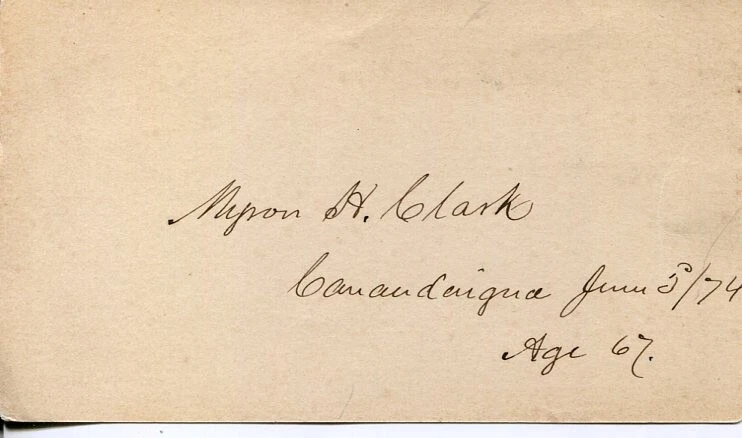 Myron H. Clark
Canandaigua June 5/74
Age 67.